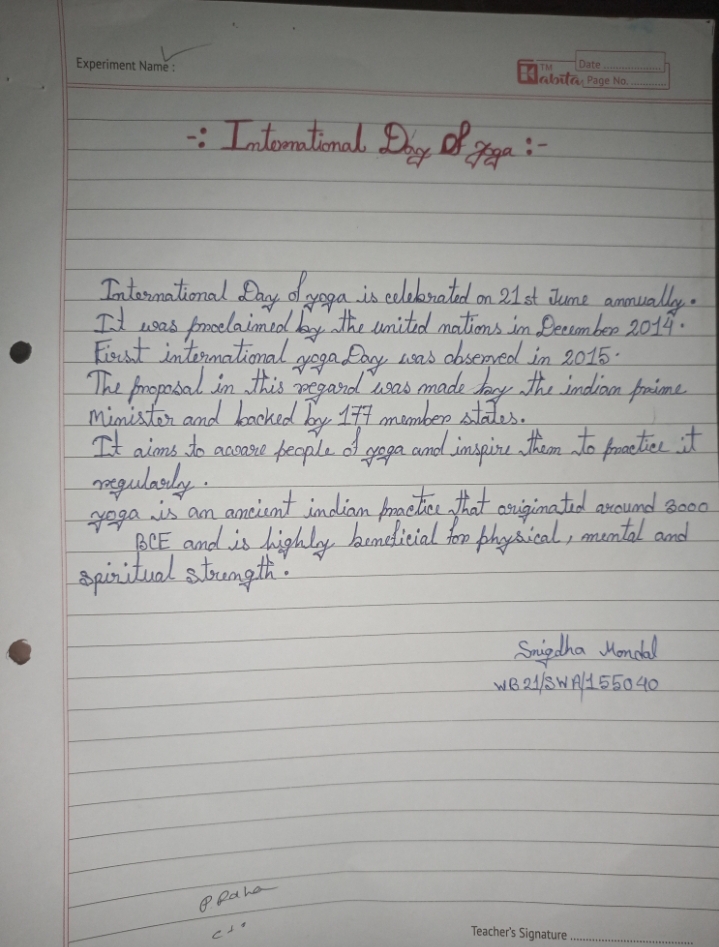 Experiment Name :
TM
Kabita
Date
Page No.
-: International Day Of yoga :-
International Day of yoga is celebrated on 21st June annually.
It was proclaimed by the united nations in December 2014.
First international yoga Day was observed in 2015.
The proposal in this regard was made by the indian prime
Minister and backed by 177 member states.
It aims to aware people of yoga and inspire them to practice it
regularly.
yoga is an ancient indian practice that originated around 3000
BCE and is highly beneficial for physical, mental and
spiritual strength.
Snigdha Mondal
WB21/SWA/155040
P Raha
Teacher's Signature